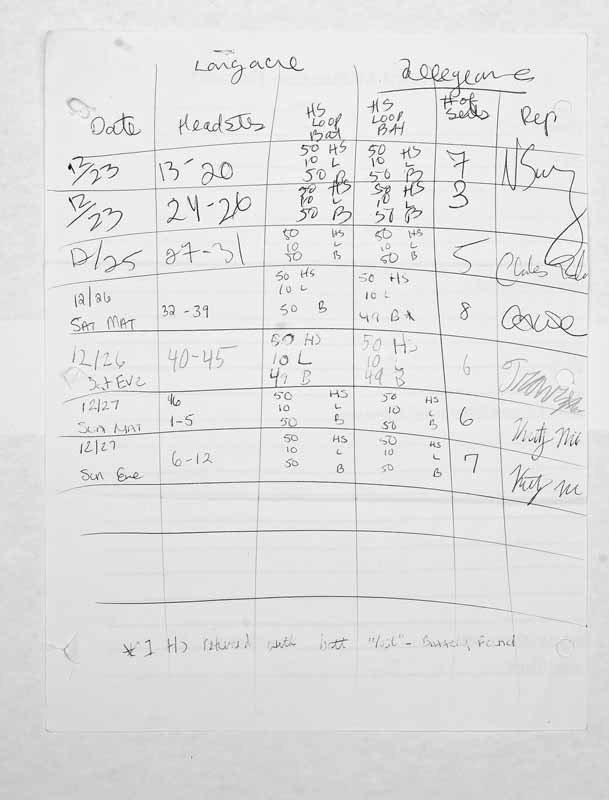 Longacre Allegiance
Date Headsets HS LOOP Bat HS LOOP BAt # of Seats Rep
12/23 13-20 50 HS 10 L 50 B 50 HS 10 L 50 B 7
12/23 24-26 50 HS 10 L 50 B 50 HS 10 L 50 B 3
12/25 27-31 50 HS 10 L 50 B 50 HS 10 L 50 B 5
12/26 SAT MAT 32-39 50 HS 10 L 50 B 50 HS 10 L 49 B* 8
12/26 Sat EVE 40-45 50 HS 10 L 49 B 50 HS 10 L 49 B 6
12/27 Sun MAT 46 1-5 50 HS 10 L 50 B 50 HS 10 L 50 B 6
12/27 Sun Eve 6-12 50 HS 10 L 50 B 50 HS 10 L 50 B 7
* 1 HS returned with batt "lost" - Battery Found